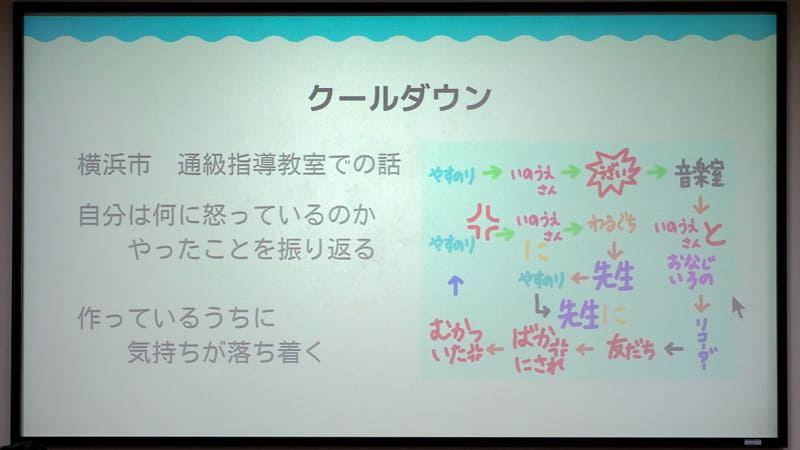 クールダウン
横浜市　通級指導教室での話
自分は何に怒っているのか
やったことを振り返る
作っているうちに
気持ちが落ち着く
やすのり → いのうえさん → うざい → 音楽室
↓
いのうえさんと
おなじいろの
↓
リコーダー
← 友だち
← ばかにされ
← むかついた
↑
やすのり → いのうえさんに → わるぐち
↓
先生
← やすのり
↳ 先生に